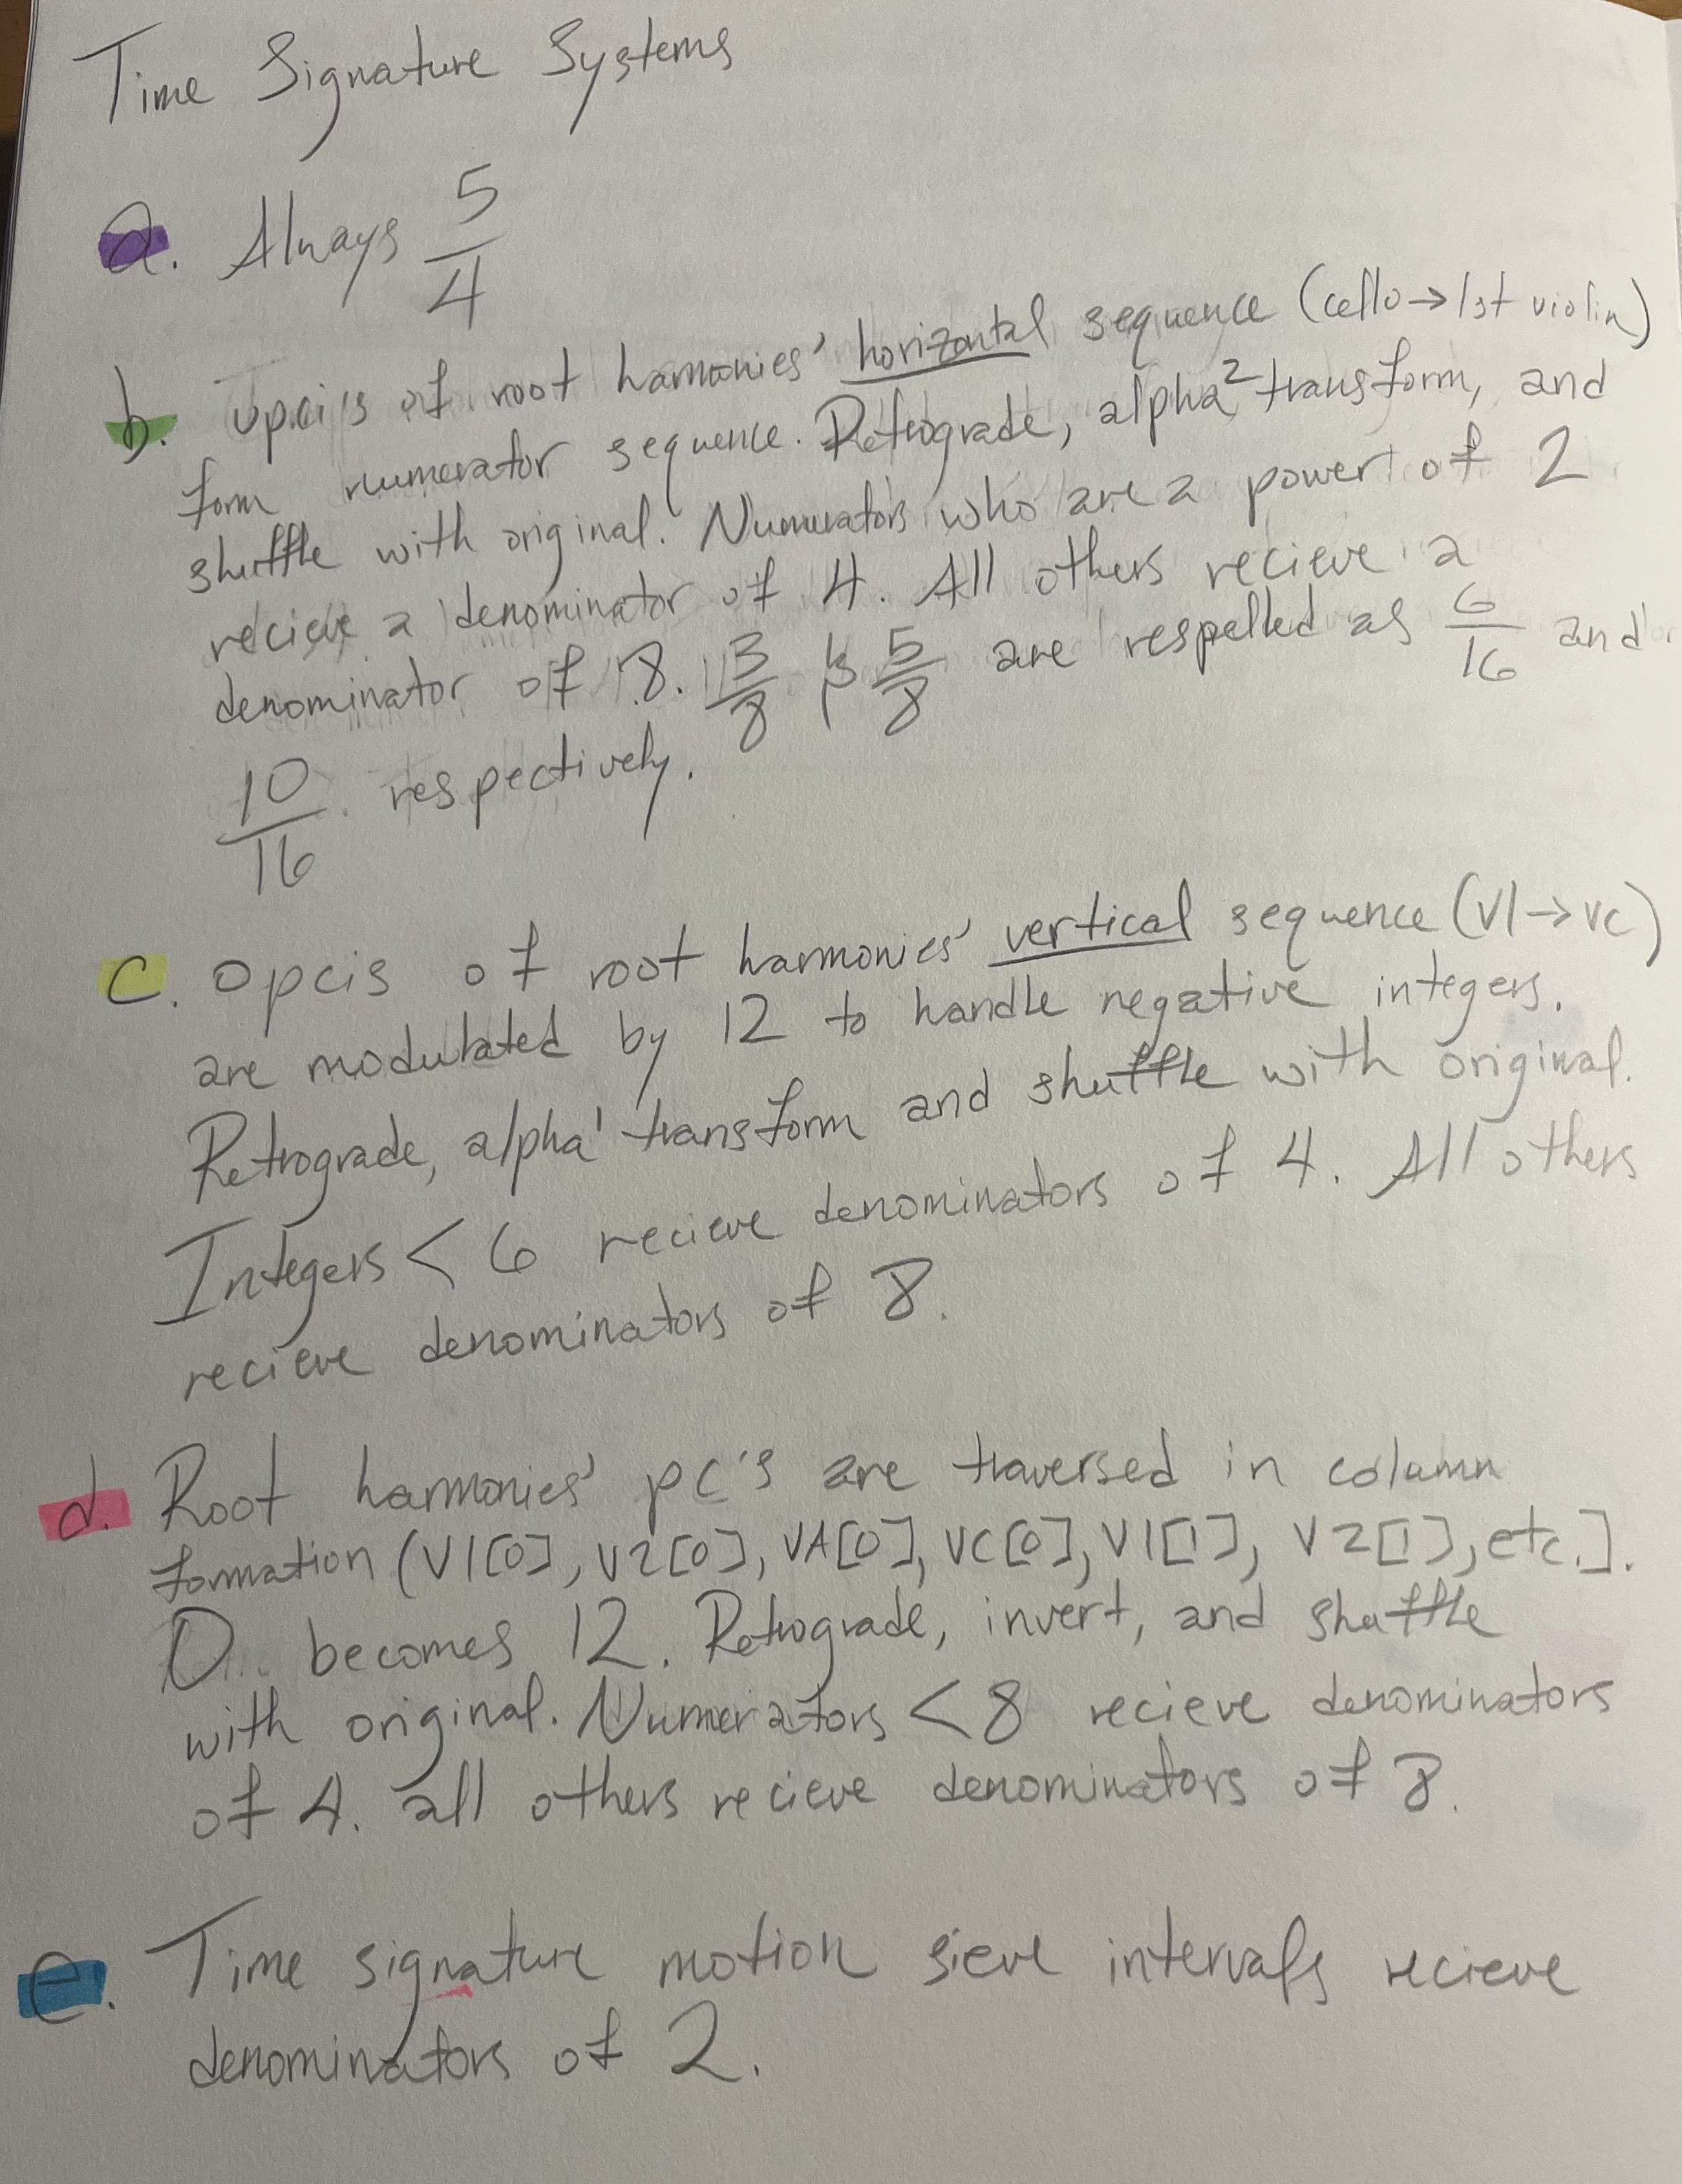 Time Signature Systems
a. Always 5/4
b. upci's of root harmonies' horizontal sequence (cello→1st violin)
form numerator sequence. Retrograde, alpha² transform, and
shuffle with original. Numerators who are a power of 2
recieve a denominator of 4. All others recieve a
denominator of 8. 3/8 & 5/8 are respelled as 6/16 and
10/16 respectively.
c. opcis of root harmonies' vertical sequence (V1→VC)
are modulated by 12 to handle negative integers.
Retrograde, alpha¹ transform and shuffle with original.
Integers < 6 recieve denominators of 4. All others
recieve denominators of 8.
d. Root harmonies' pc's are traversed in column
formation (V1[0], V2[0], VA[0], VC[0], V1[1], V2[1], etc.].
0 becomes 12. Retrograde, invert, and shuffle
with original. Numerators < 8 recieve denominators
of 4. all others recieve denominators of 8.
e. Time signature motion sieve intervals recieve
denominators of 2.